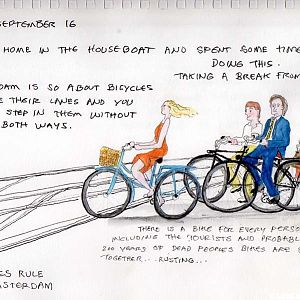 SEPTEMBER 16
HOME IN THE HOUSEBOAT AND SPENT SOME TIME
DOING THIS.
TAKING A BREAK FROM
DAM IS SO ABOUT BICYCLES
E THEIR LANES AND YOU
STEP IN THEM WITHOUT
BOTH WAYS.
THERE IS A BIKE FOR EVERY PERSO
INCLUDING THE TOURISTS AND PROBABL
200 YEARS OF DEAD PEOPLES BIKES ARE S
TOGETHER... RUSTING...
ES RULE
MSTERDAM